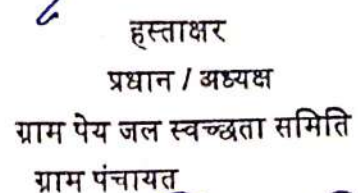 हस्ताक्षर
प्रधान / अध्यक्ष
ग्राम पेय जल स्वच्छता समिति
ग्राम पंचायत